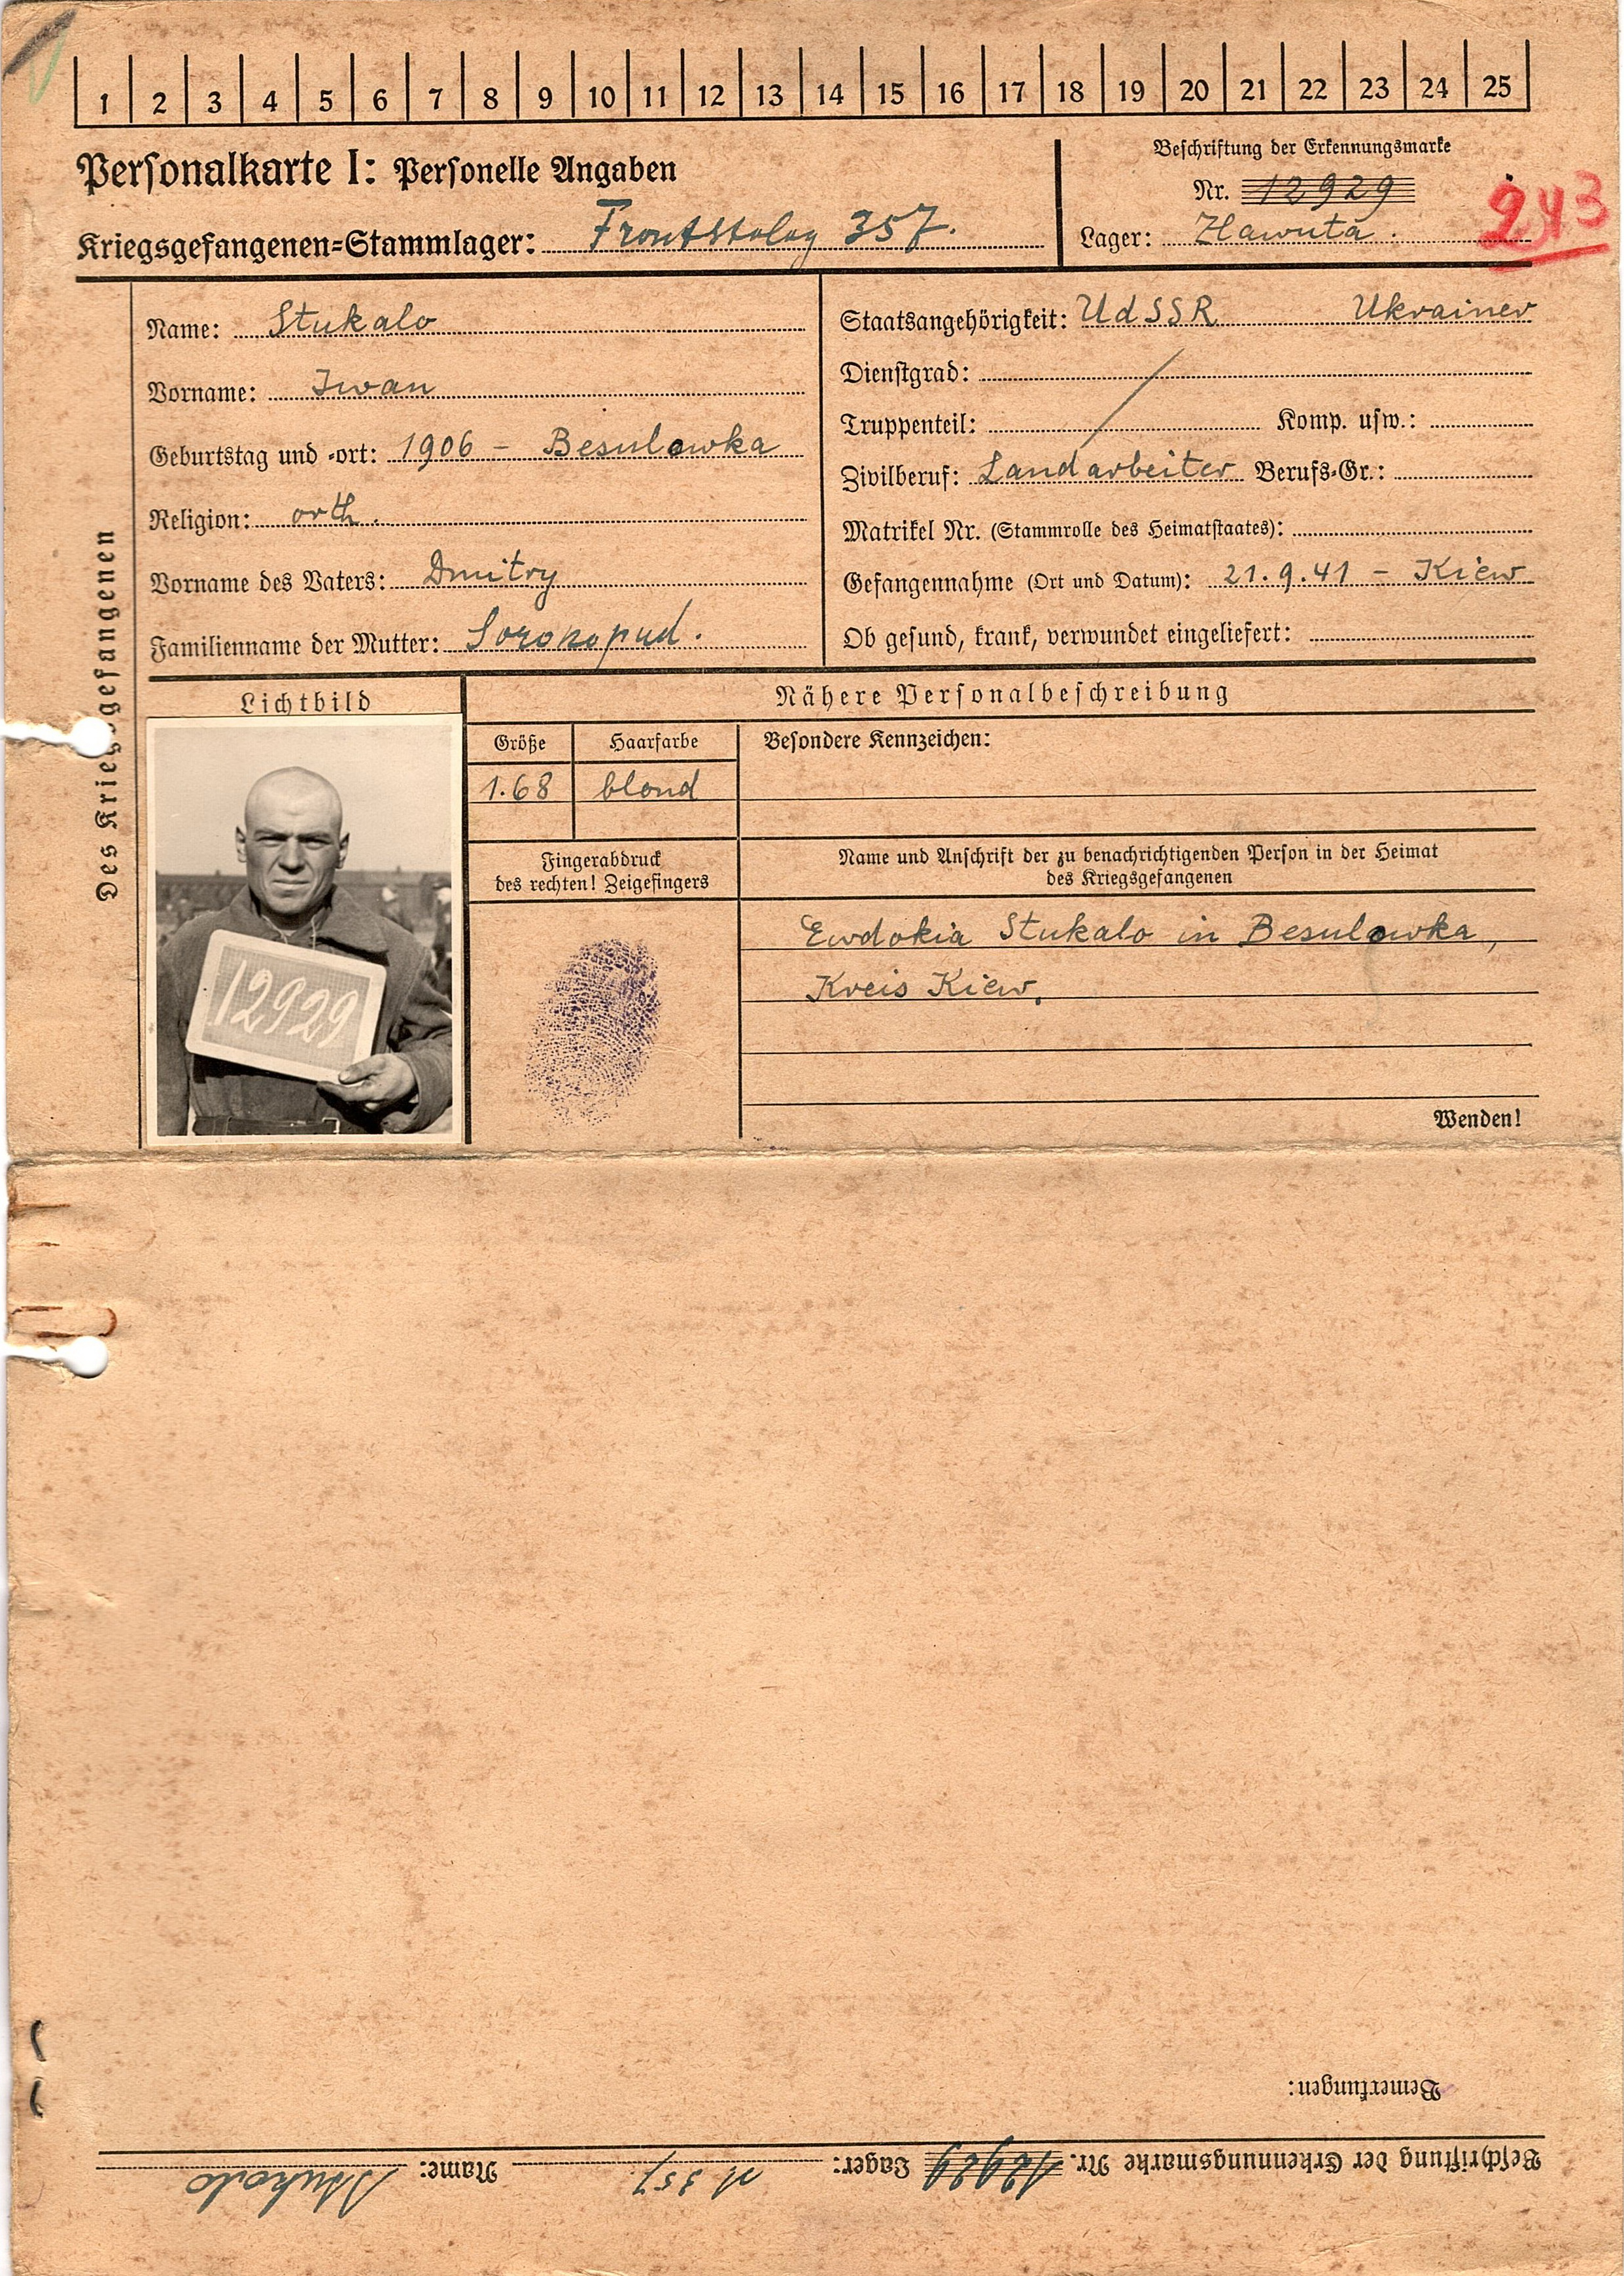 1 2 3 4 5 6 7 8 9 10 11 12 13 14 15 16 17 18 19 20 21 22 23 24 25
Personalkarte I: Personelle Angaben
Kriegsgefangenen-Stammlager: Frontstalag 357.
Beschriftung der Erkennungsmarke
Nr. 12929
Lager: Zlawuta.
243
Des Kriegsgefangenen
Name: Stukalo
Vorname: Iwan
Geburtstag und -ort: 1906 - Besulowka
Religion: orth.
Vorname des Vaters: Dmitry
Familienname der Mutter: Soronopud.
Staatsangehörigkeit: UdSSR Ukrainer
Dienstgrad:
Truppenteil: Komp. usw.:
Zivilberuf: Landarbeiter Berufs-Gr.:
Matrikel Nr. (Stammrolle des Heimatstaates):
Gefangennahme (Ort und Datum): 21.9.41 - Kiew
Ob gesund, krank, verwundet eingeliefert:
Lichtbild
12929
Nähere Personalbeschreibung
Größe Haarfarbe Besondere Kennzeichen:
1.68 blond
Fingerabdruck
des rechten! Zeigefingers
Name und Anschrift der zu benachrichtigenden Person in der Heimat
des Kriegsgefangenen
Ewdokia Stukalo in Besulowka,
Kreis Kiew.
Wenden!
Bemerkungen:
Beschriftung der Erkennungsmarke Nr. 12929 Lager: 357 Name: Stukalo